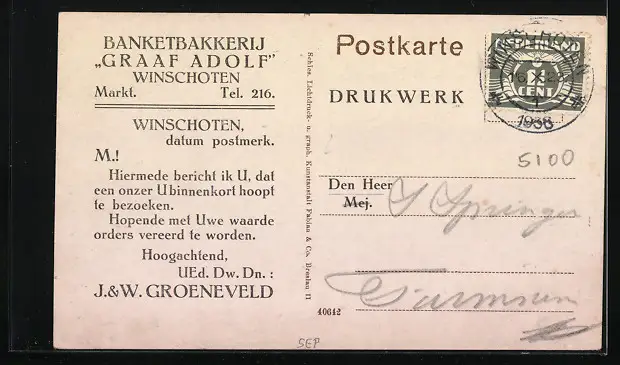 BANKETBAKKERIJ
„GRAAF ADOLF"
WINSCHOTEN
Markt. Tel. 216.
WINSCHOTEN,
datum postmerk.
M.!
Hiermede bericht ik U, dat
een onzer U binnenkort hoopt
te bezoeken.
Hopende met Uwe waarde
orders vereerd te worden.
Hoogachtend,
UEd. Dw. Dn.:
J.&W. GROENEVELD
Schles. Lichtdruck- u. graph. Kunstanstalt Fabian & Co. Breslau II
Postkarte
DRUKWERK
NEDERLAND
CENT
1938
5100
Den Heer
Mej.
S Springer
Farmsum
40642
SEP